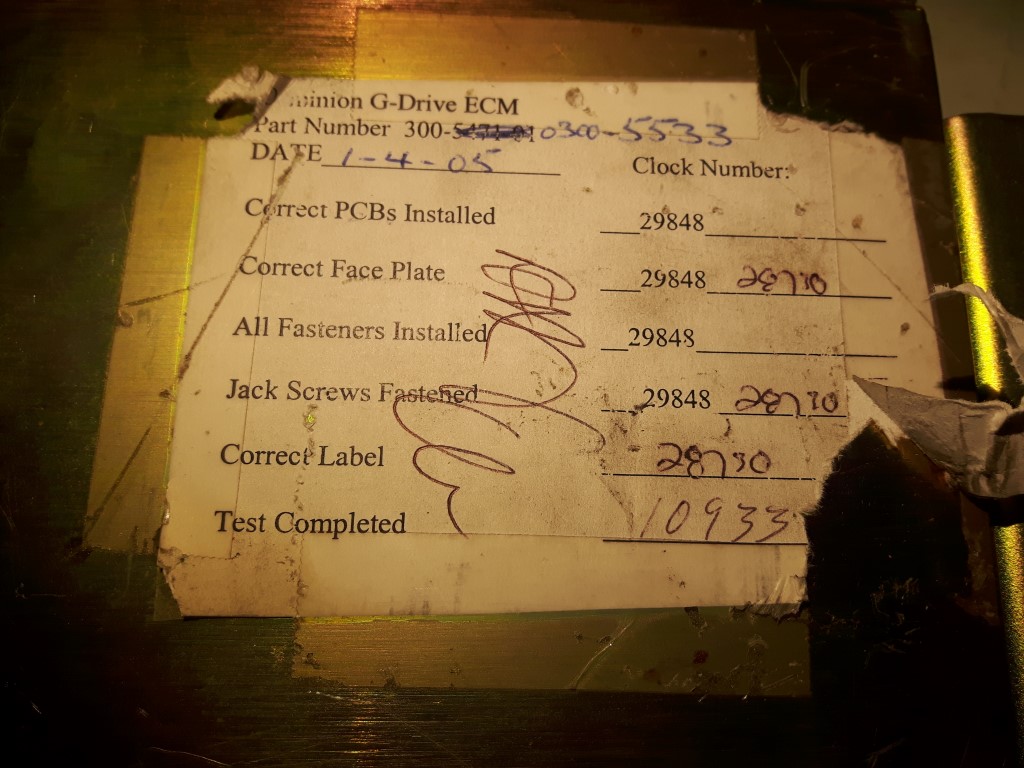 G-Drive ECM
Part Number 300- 0300-5533
DATE 1-4-05
Clock Number:
Correct PCBs Installed __29848
Correct Face Plate __29848 28730
All Fasteners Installed __29848
Jack Screws Fastened __29848 28730
Correct Label 28730
Test Completed 10933